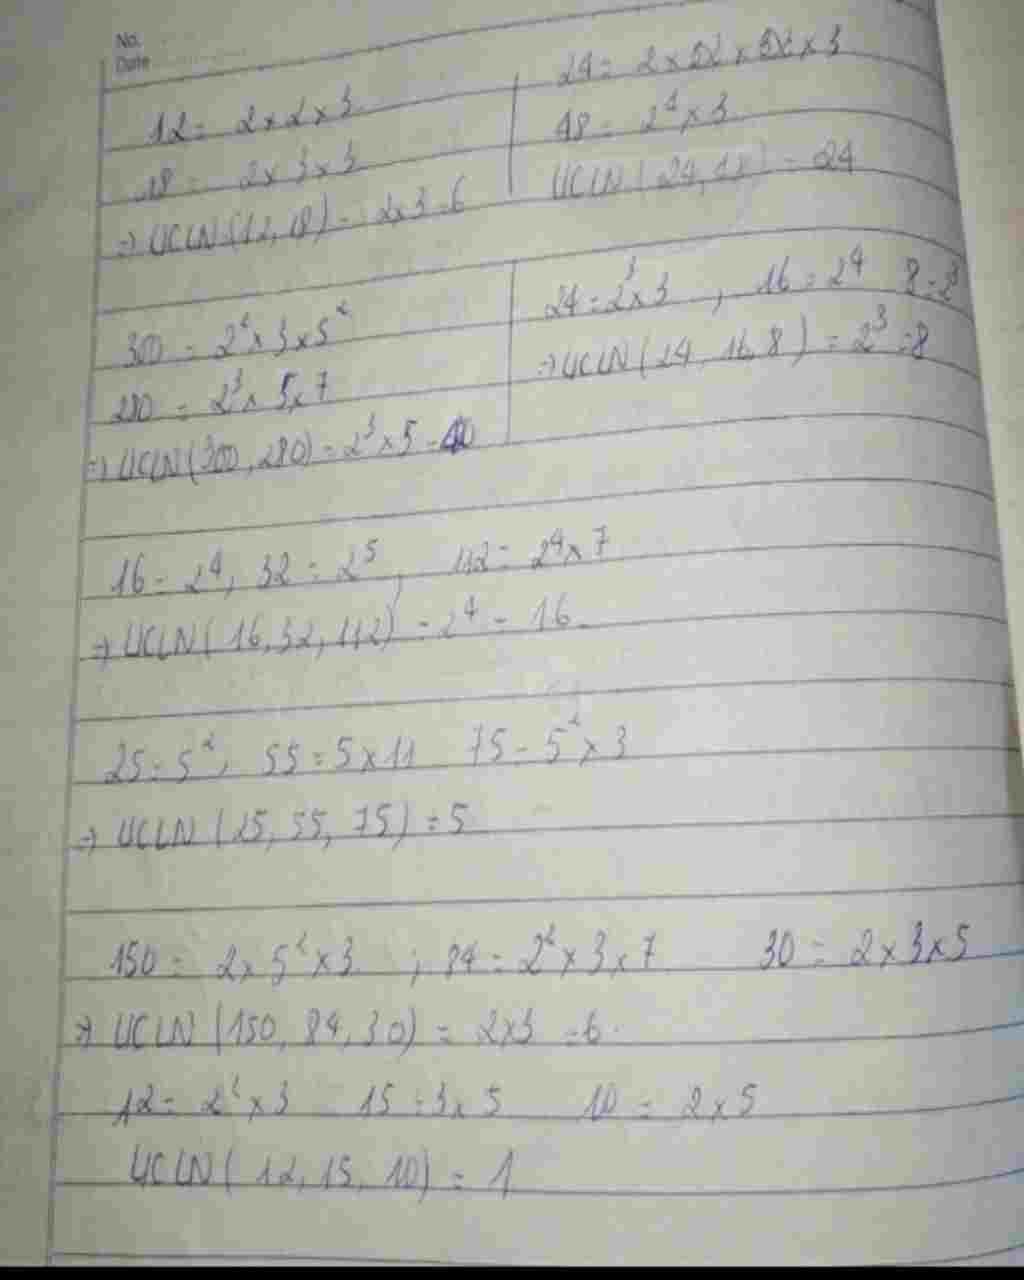 No.
Date
12 = 2 x 2 x 3
18 = 2 x 3 x 3
=> ƯCLN (12, 18) = 2x3 = 6
24 = 2 x 2 x 2 x 3
48 = 2⁴ x 3
ƯCLN (24, 48) = 24
300 = 2² x 3 x 5²
280 = 2³ x 5 x 7
=> ƯCLN (300, 280) = 2³ x 5 = 40
24 = 2³ x 3 , 16 = 2⁴ 8 = 2³
=> ƯCLN (24 16, 8) = 2³ = 8
16 = 2⁴, 32 = 2⁵, 112 = 2⁴ x 7
=> ƯCLN ( 16, 32, 112) = 2⁴ = 16
25 = 5², 55 = 5 x 11 75 = 5² x 3
=> ƯCLN (25, 55, 75) = 5
150 = 2 x 5² x 3 ; 84 = 2² x 3 x 7 30 = 2 x 3 x 5
=> ƯCLN (150, 84, 30) = 2x3 = 6
12 = 2² x 3 15 = 3 x 5 10 = 2 x 5
ƯCLN ( 12, 15, 10) = 1